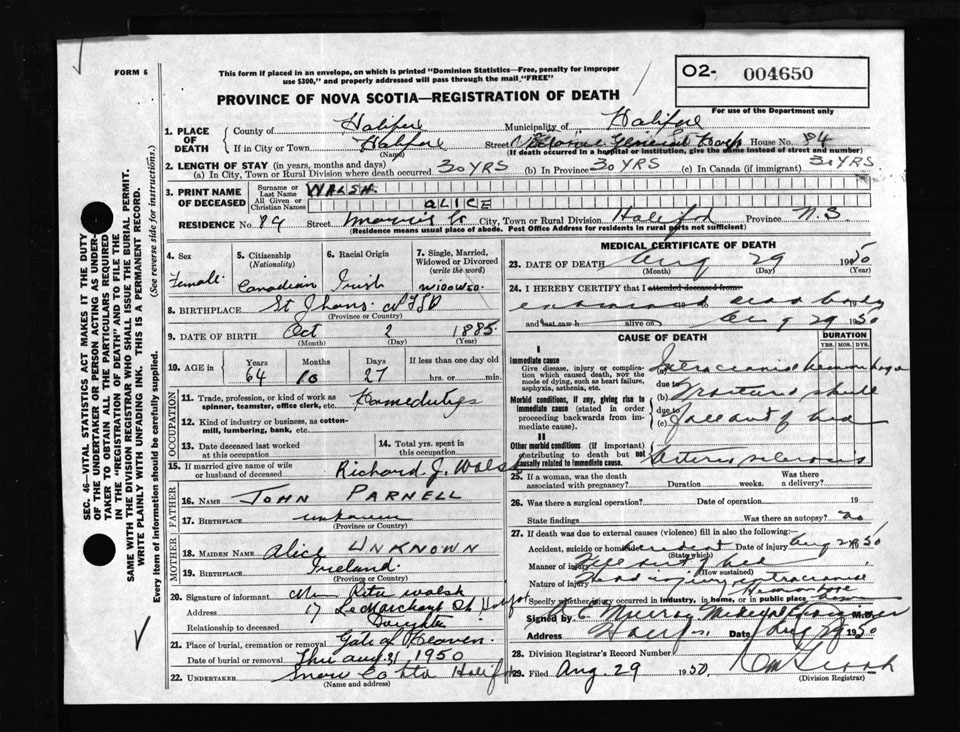 FORM 6
This form if placed in an envelope, on which is printed "Dominion Statistics—Free, penalty for improper
use $300," and properly addressed will pass through the mail "FREE"
O2- 004650
For use of the Department only
PROVINCE OF NOVA SCOTIA—REGISTRATION OF DEATH
1. PLACE OF DEATH
County of Halifax Municipality of Halifax
If in City or Town Halifax Street Victoria General Hosp House No. 84
(Name) (If death occurred in a hospital or institution, give the name instead of street and number)
2. LENGTH OF STAY (in years, months and days)
(a) In City, Town or Rural Division where death occurred 30 YRS (b) In Province 30 YRS (c) In Canada (if immigrant) 30 YRS
3. PRINT NAME OF DECEASED
Surname or Last Name WALSH
All Given or Christian Names ALICE
RESIDENCE No. 89 Street Morris St City, Town or Rural Division Halifax Province N.S.
(Residence means usual place of abode. Post Office Address for residents in rural parts not sufficient)
4. Sex Female
5. Citizenship (Nationality) Canadian
6. Racial Origin Irish
7. Single, Married, Widowed or Divorced (write the word) WIDOWED.
8. BIRTHPLACE St Jhons NFLD
(Province or Country)
9. DATE OF BIRTH Oct 2 1885
(Month) (Day) (Year)
10. AGE in Years 64 Months 10 Days 27 If less than one day old
hrs. or min.
OCCUPATION
11. Trade, profession, or kind of work as spinner, teamster, office clerk, etc. Homeduties
12. Kind of industry or business, as cotton-mill, lumbering, bank, etc.
13. Date deceased last worked at this occupation
14. Total yrs. spent in this occupation
15. If married give name of wife or husband of deceased Richard J. Walsh
FATHER
16. NAME JOHN PARNELL
17. BIRTHPLACE unknown
(Province or Country)
MOTHER
18. MAIDEN NAME Alice UNKNOWN
19. BIRTHPLACE Ireland.
(Province or Country)
20. Signature of informant Rita Walsh
Address 17 LeMarchant St Halifax
Relationship to deceased Daughter
21. Place of burial, cremation or removal Gate of Heaven.
Date of burial or removal Thu Aug 31 1950
22. UNDERTAKER Snow Co Ltd Halifax
(Name and address)
MEDICAL CERTIFICATE OF DEATH
23. DATE OF DEATH Aug 29 1950
(Month) (Day) (Year)
24. I HEREBY CERTIFY that I attended deceased from
examined dead body
and last saw h alive on Aug 29 1950
CAUSE OF DEATH
DURATION
YRS. MOS. DYS.
I
Immediate cause
Give disease, injury or complication which caused death, not the mode of dying, such as heart failure, asphyxia, asthenia, etc.
(a) Intracranial hemorrhage
due to
Morbid conditions, if any, giving rise to immediate cause (stated in order proceeding backwards from immediate cause).
(b) Fractured skull
due to
(c) Fall out of bed
II
Other morbid conditions (if important) contributing to death but not causally related to immediate cause.
Arterio sclerosis
25. If a woman, was the death associated with pregnancy? Duration weeks. Was there a delivery?
26. Was there a surgical operation? Date of operation 19
State findings Was there an autopsy? no
27. If death was due to external causes (violence) fill in also the following:
Accident, suicide or homicide accident Date of injury Aug 28 50
(State which)
Manner of injury Fell out of bed
(How sustained)
Nature of injury Head injury intracranial Hemorrhage
Specify whether injury occurred in industry, in home, or in public place home
Signed by Medical Examiner M.D.
Address Halifax Date Aug 29 1950
28. Division Registrar's Record Number
29. Filed Aug. 29 1950
(Division Registrar)
SEC. 46—VITAL STATISTICS ACT MAKES IT THE DUTY
OF THE UNDERTAKER OR PERSON ACTING AS UNDER-
TAKER TO OBTAIN ALL THE PARTICULARS REQUIRED
IN THE "REGISTRATION OF DEATH" AND TO FILE THE
SAME WITH THE DIVISION REGISTRAR WHO SHALL ISSUE THE BURIAL PERMIT.
WRITE PLAINLY WITH UNFADING INK. THIS IS A PERMANENT RECORD.
Every item of information should be carefully supplied. (See reverse side for instructions.)